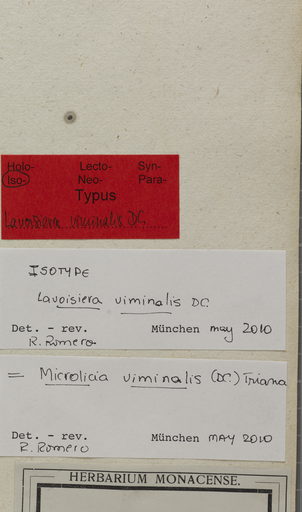 Holo- Lecto- Syn-
Iso- Neo- Para-
Typus
Lavoisiera viminalis DC.
ISOTYPE
Lavoisiera viminalis DC.
Det. - rev. München may 2010
R. Romero
= Microlicia viminalis (DC.) Triana
Det. - rev. München MAY 2010
R. Romero
HERBARIUM MONACENSE.